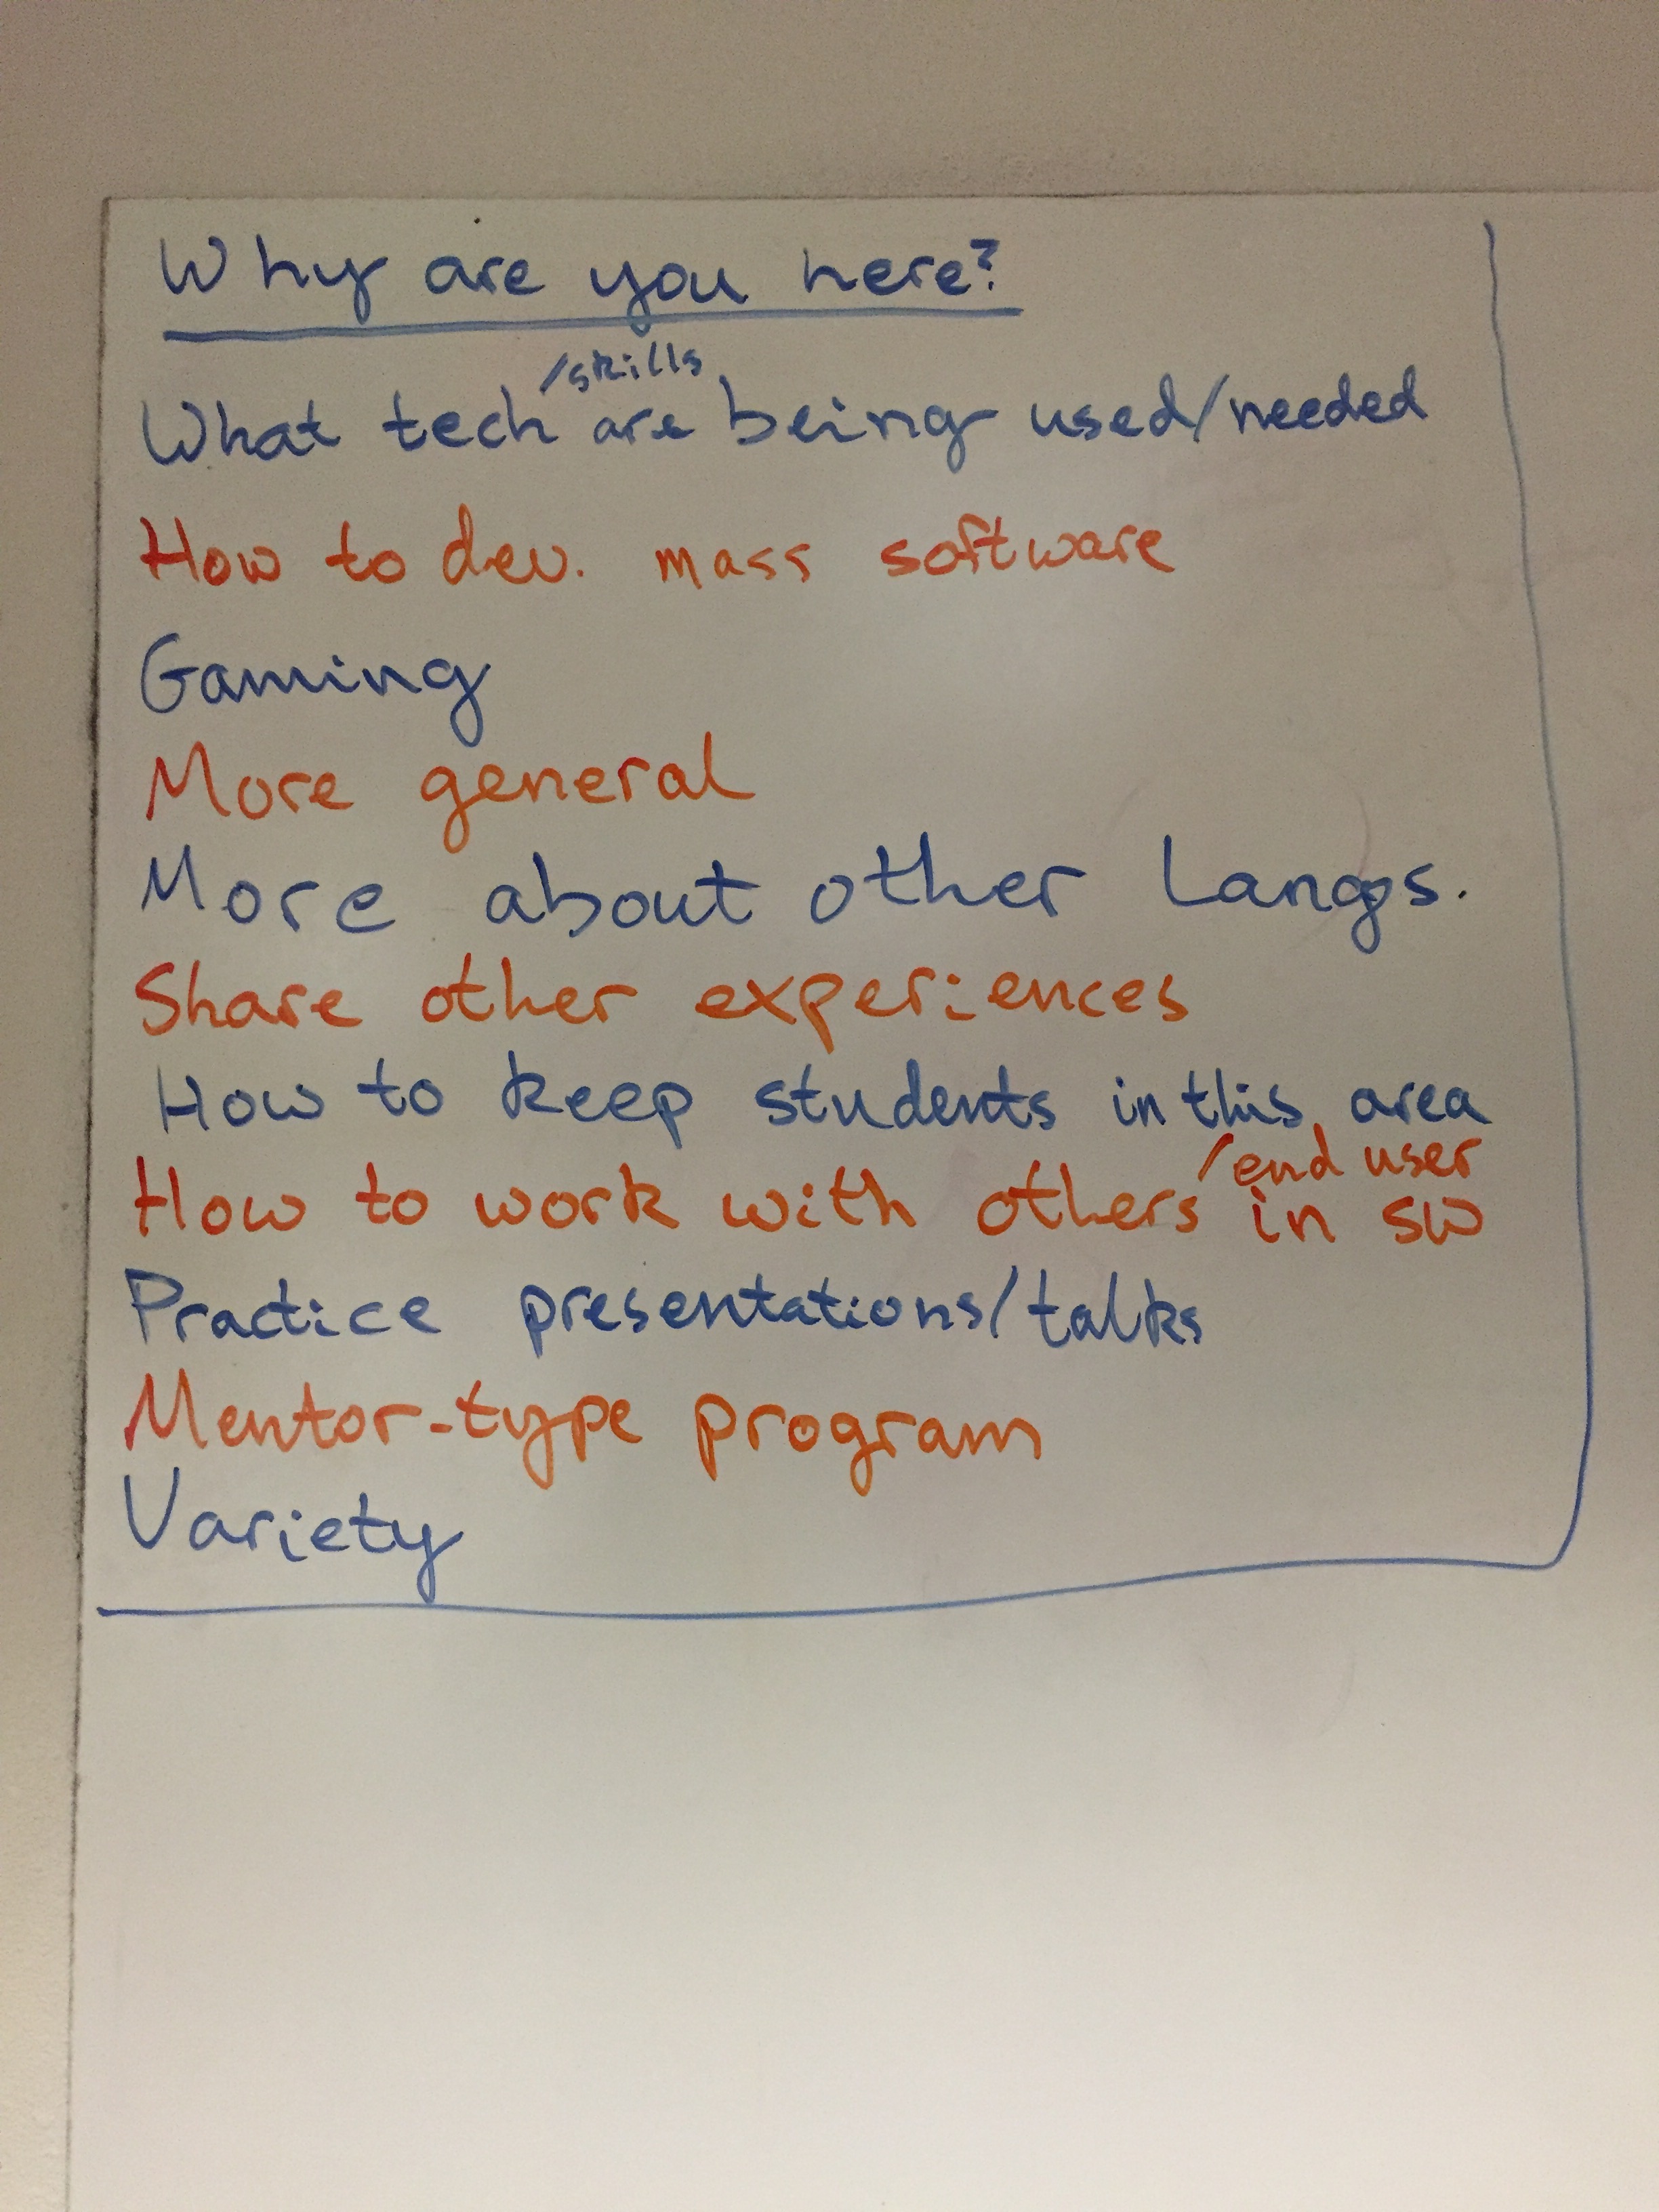 Why are you here?
What tech/skills are being used/needed
How to dev. mass software
Gaming
More general
More about other Langs.
Share other experiences
How to keep students in this area
How to work with others/end user in SW
Practice presentations/talks
Mentor-type program
Variety